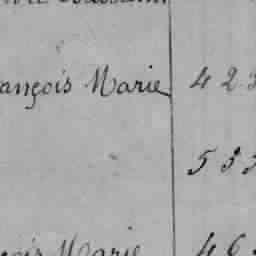 ançois Marie 4 2 3
5 3 3
çois Marie 4 6